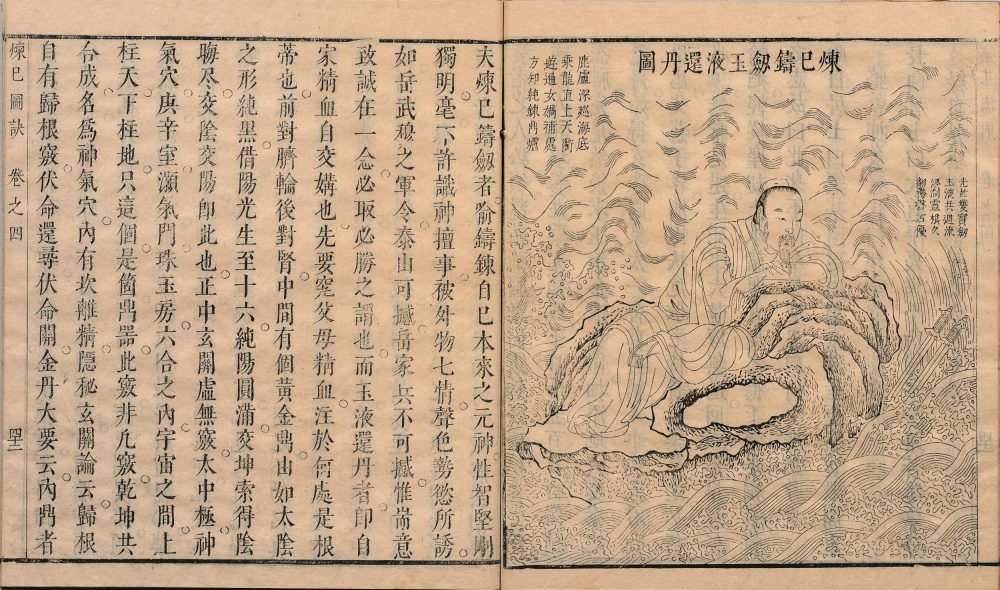 煉巳鑄劒玉液還丹圖
雙寶劒
玉液共週流
浸潤靈根久
鹿盧深巡海底
乘龍直上天衢
遊遍女媧補處
方知純鍊
夫煉巳鑄劒者喻鑄鍊自巳本來之元神性智堅剛
獨明毫不許識神擅事被外物七情聲色勢慾所誘
如岳武穆之軍令泰山可撼岳家兵不可撼惟耑意
致誠在一念必取必勝之謂也而玉液還丹者即自
家精血自交媾也先要窮父母精血注於何處是根
蒂也前對臍輪後對腎中間有個黃金鼎由如太陰
之形純黑借陽光生至十六純陽圓滿交坤索得陰
晦尽交陰交陽即此也正中玄關虛無竅太中極神
氣穴庚辛室灝氣門珠玉房六合之內宇宙之間上
柱天下柱地只這個是箇鼎器此竅非凢竅乾坤共
合成名爲神氣穴內有坎離精隱秘玄關論云歸根
自有歸根竅伏命還尋伏命關金丹大要云內鼎者
煉巳圖訣 卷之四